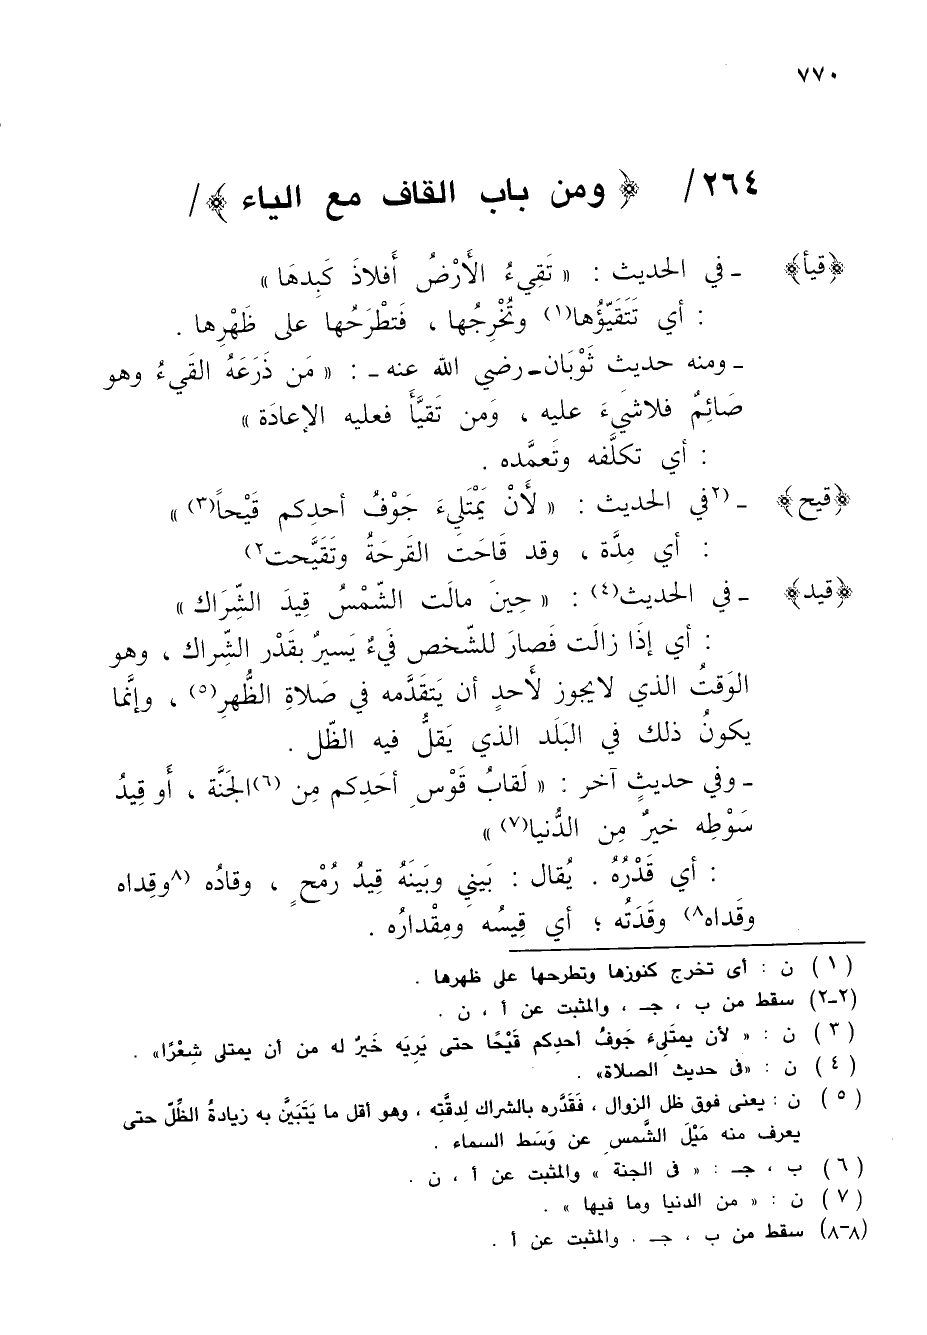 ٧٧٠
٢٦٤/ ﴿ ومن باب القاف مع الياء ﴾/
﴿قيأ﴾ ـ في الحديث : « تَقِيءُ الأَرْضُ أَفلاذَ كَبِدهَا »
: أي تَتَقَيّؤُها(١) وتُخْرِجُها ، فَتطْرَحُها على ظَهْرِها .
ـ ومنه حديث ثَوْبَان ـ رضي الله عنه ـ : « مَن ذَرَعَهُ القَيءُ وهو
صَائِمٌ فلاشَيءَ عليه ، وَمن تَقَيَّأَ فعليه الإعادَة »
: أي تكلَّفه وتَعمَّده .
﴿قيح﴾ ـ (٢في الحديث : « لَأَنْ يَمْتَلِيءَ جَوْفُ أحدِكم قَيْحاً(٣) »
: أي مِدَّة ، وقد قَاحَت القَرحَةُ وتَقَيَّحت٢)
﴿قيد﴾ ـ في الحديث(٤) : « حِينَ مالَت الشَّمْسُ قِيدَ الشِّرَاك »
: أي إذَا زالَت فَصارَ للشّخص فَيءٌ يَسيرٌ بقَدْر الشِّراك ، وهو
الوَقتُ الذي لايجوز لأَحدٍ أن يَتقَدَّمه في صَلاةِ الظُّهرِ(٥) ، وإنَّما
يكونُ ذلك في البَلَد الذي يَقلُّ فيه الظّل .
ـ وفي حديثٍ آخر : « لَقابُ قَوْسِ أحَدِكم مِن (٦)الجَنَّة ، أَو قِيدُ
سَوْطِه خيرٌ مِن الدُّنيا(٧) »
: أي قَدْرُهُ . يُقال : بَيني وبَينَهُ قِيدُ رُمْحٍ ، وقادُه (٨وقِداه
وقَداه٨) وقَدَتُه ؛ أي قِيسُه ومِقْدارُه .
(١) ن : أى تخرج كنوزها وتطرحها على ظهرها .
(٢-٢) سقط من ب ، جـ ، والمثبت عن أ ، ن .
(٣) ن : « لأن يمتَلِىءَ جَوفُ أحدِكم قَيْحًا حتى يَرِيَه خَيرٌ له من أن يمتلى شِعْرًا» .
(٤) ن : «فى حديث الصلاة» .
(٥) ن : يعنى فوق ظل الزوال ، فَقَدَّره بالشراك لدقَّتِه ، وهو أقل ما يَتَبَيَّن به زيادةُ الظِّلّ حتى
يعرف منه مَيْلَ الشَّمسِ عن وَسَط السماء .
(٦) ب ، جـ : « فى الجنة » والمثبت عن أ ، ن .
(٧) ن : « من الدنيا وما فيها » .
(٨-٨) سقط من ب ، جـ . والمثبت عن أ .